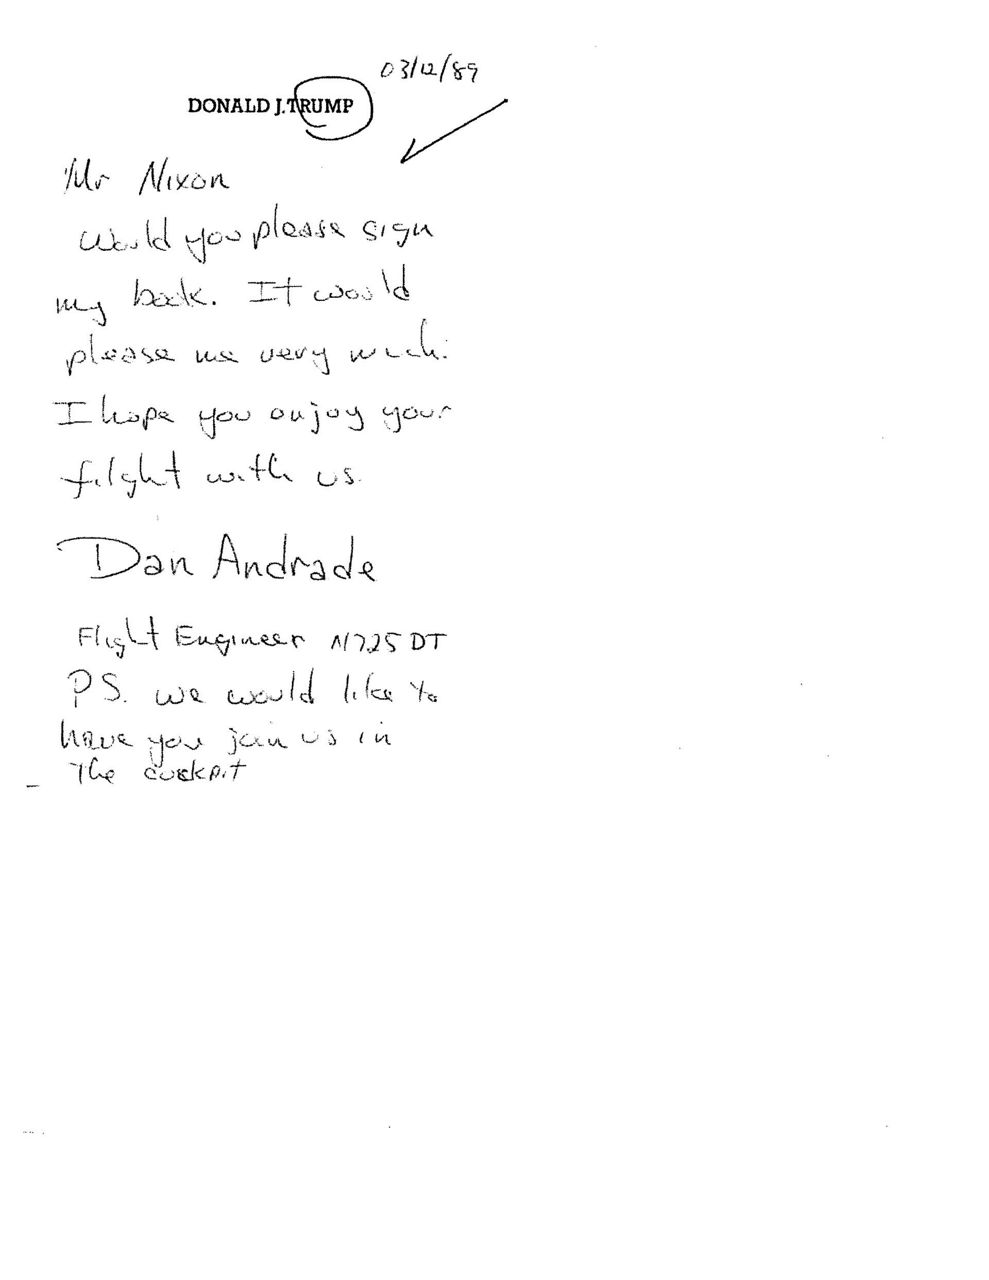 03/12/89
DONALD J. TRUMP
Mr Nixon
Would you please sign
my book. It would
please me very much.
I hope you enjoy your
filght with us.
Dan Andrade
Flight Engineer N725DT
P.S. we would like to
have you join us in
The cockpit